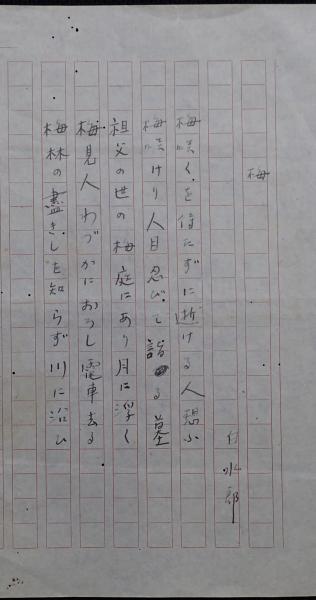 梅
白水郎
梅咲くを待たずに逝ける人想ふ
梅咲けり人目忍びて詣る墓
祖父の世の梅庭にあり月に浮く
梅見人わづかにおろし電車去る
梅林の盡きしを知らず川に沿ひ